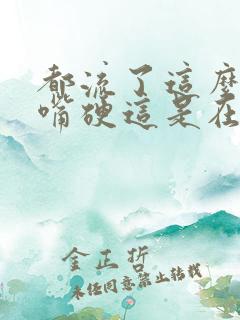 都流了這麼
嘴硬這是在
金正哲
未经同意禁止转载